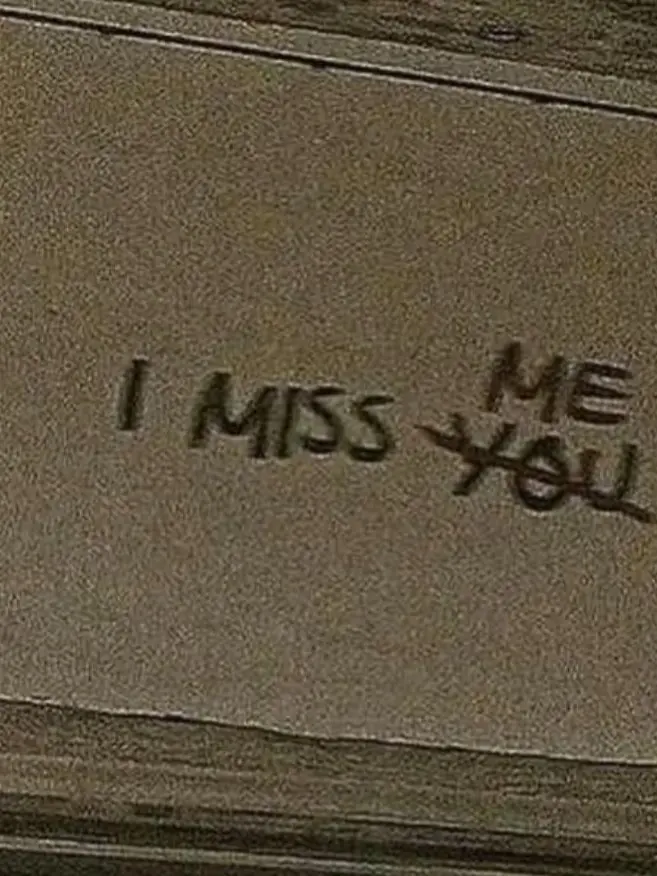 I MISS ME
YOU